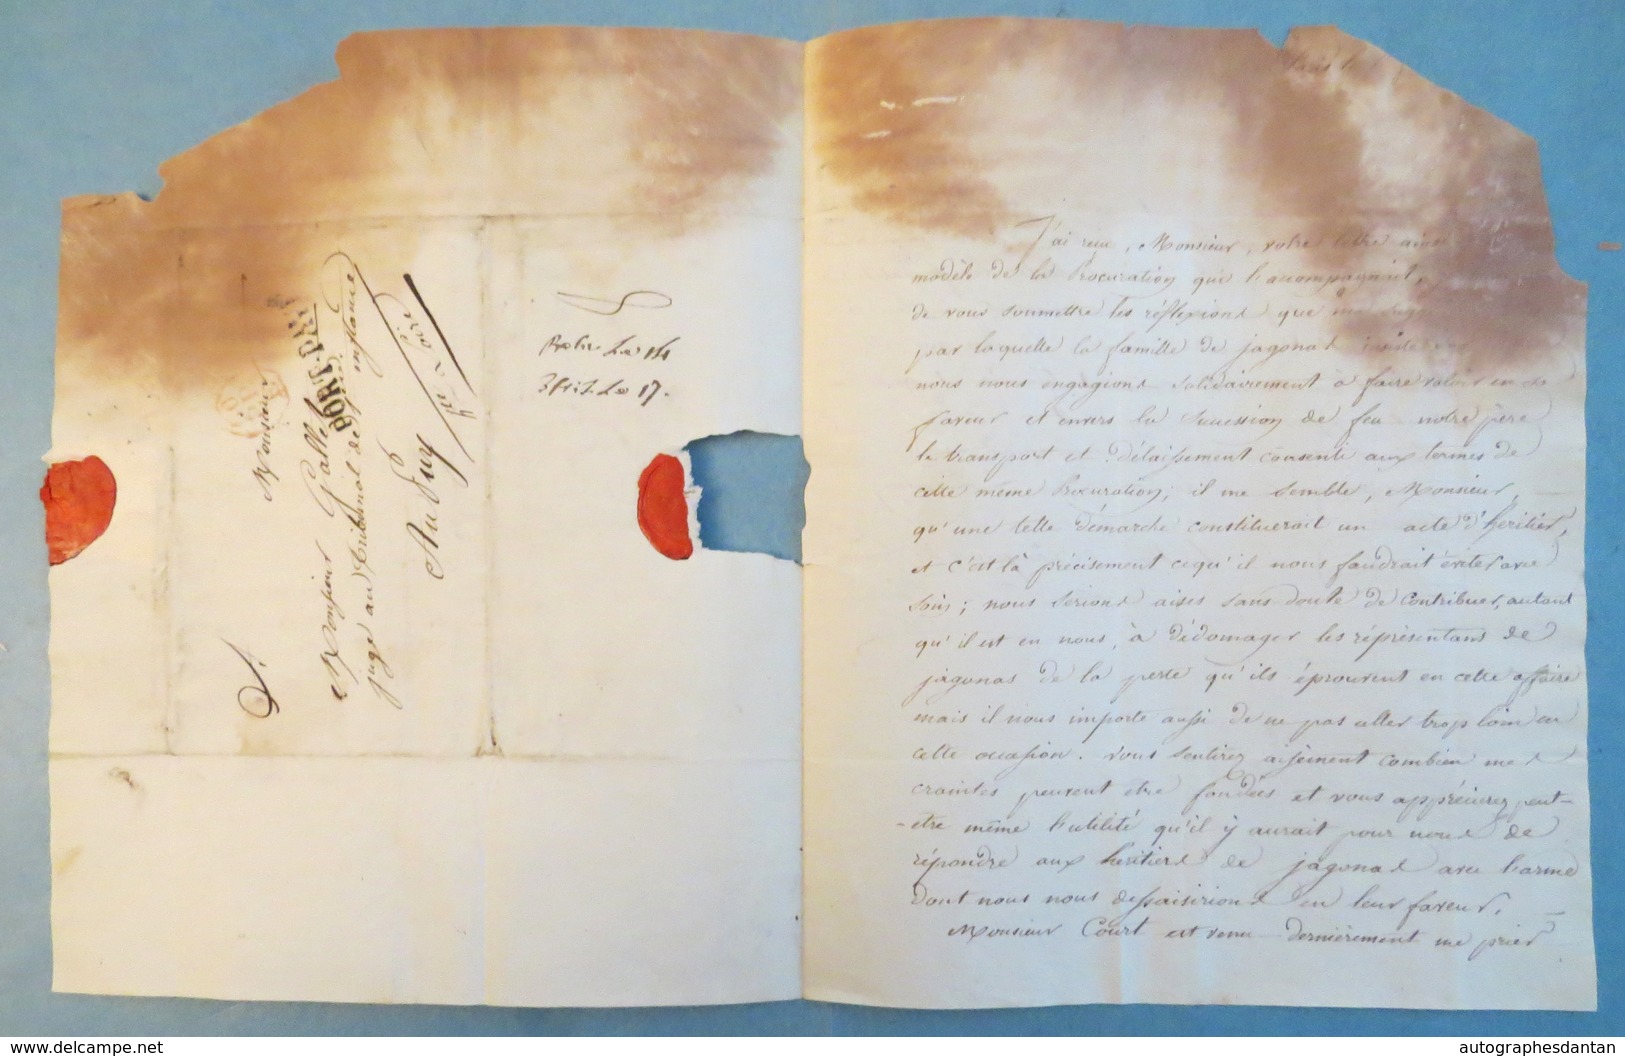 Monsieur
PORT-PAYÉ
A
Monsieur Gallet
juge au Tribunal de 1re instance
Au Puy
hte Loire
17.
Paris
J'ai reçu, Monsieur, votre lettre ainsi
modèle de la Procuration qui l'accompagnait,
de vous soumettre les réflexions que m'a
par laquelle la famille de jagonas
nous nous engagions solidairement à faire valoir en sa
faveur et envers la Succession de feu notre père
le transport et délaissement consenti aux termes de
cette même Procuration; il me semble, Monsieur,
qu'une telle démarche constituerait un acte d'heritier,
et c'est là précisement ce qu'il nous faudrait éviter avec
soin; nous serions aises sans doute de contribuer, autant
qu'il est en nous, à dédomager les réprésentans de
jagonas de la perte qu'ils éprouvent en cette affaire
mais il nous importe aussi de ne pas aller trop loin en
cette occasion. vous sentirez aisément combien mes
craintes peuvent être fondées et vous apprécierez peut-
-etre même l'utilité qu'il y aurait pour nous de
répondre aux heritiers de jagonas avec l'arme
dont nous nous dessaisirions en leur faveur.
Monsieur Court est venu dernièrement me prier
autographesdantan
www.delcampe.net